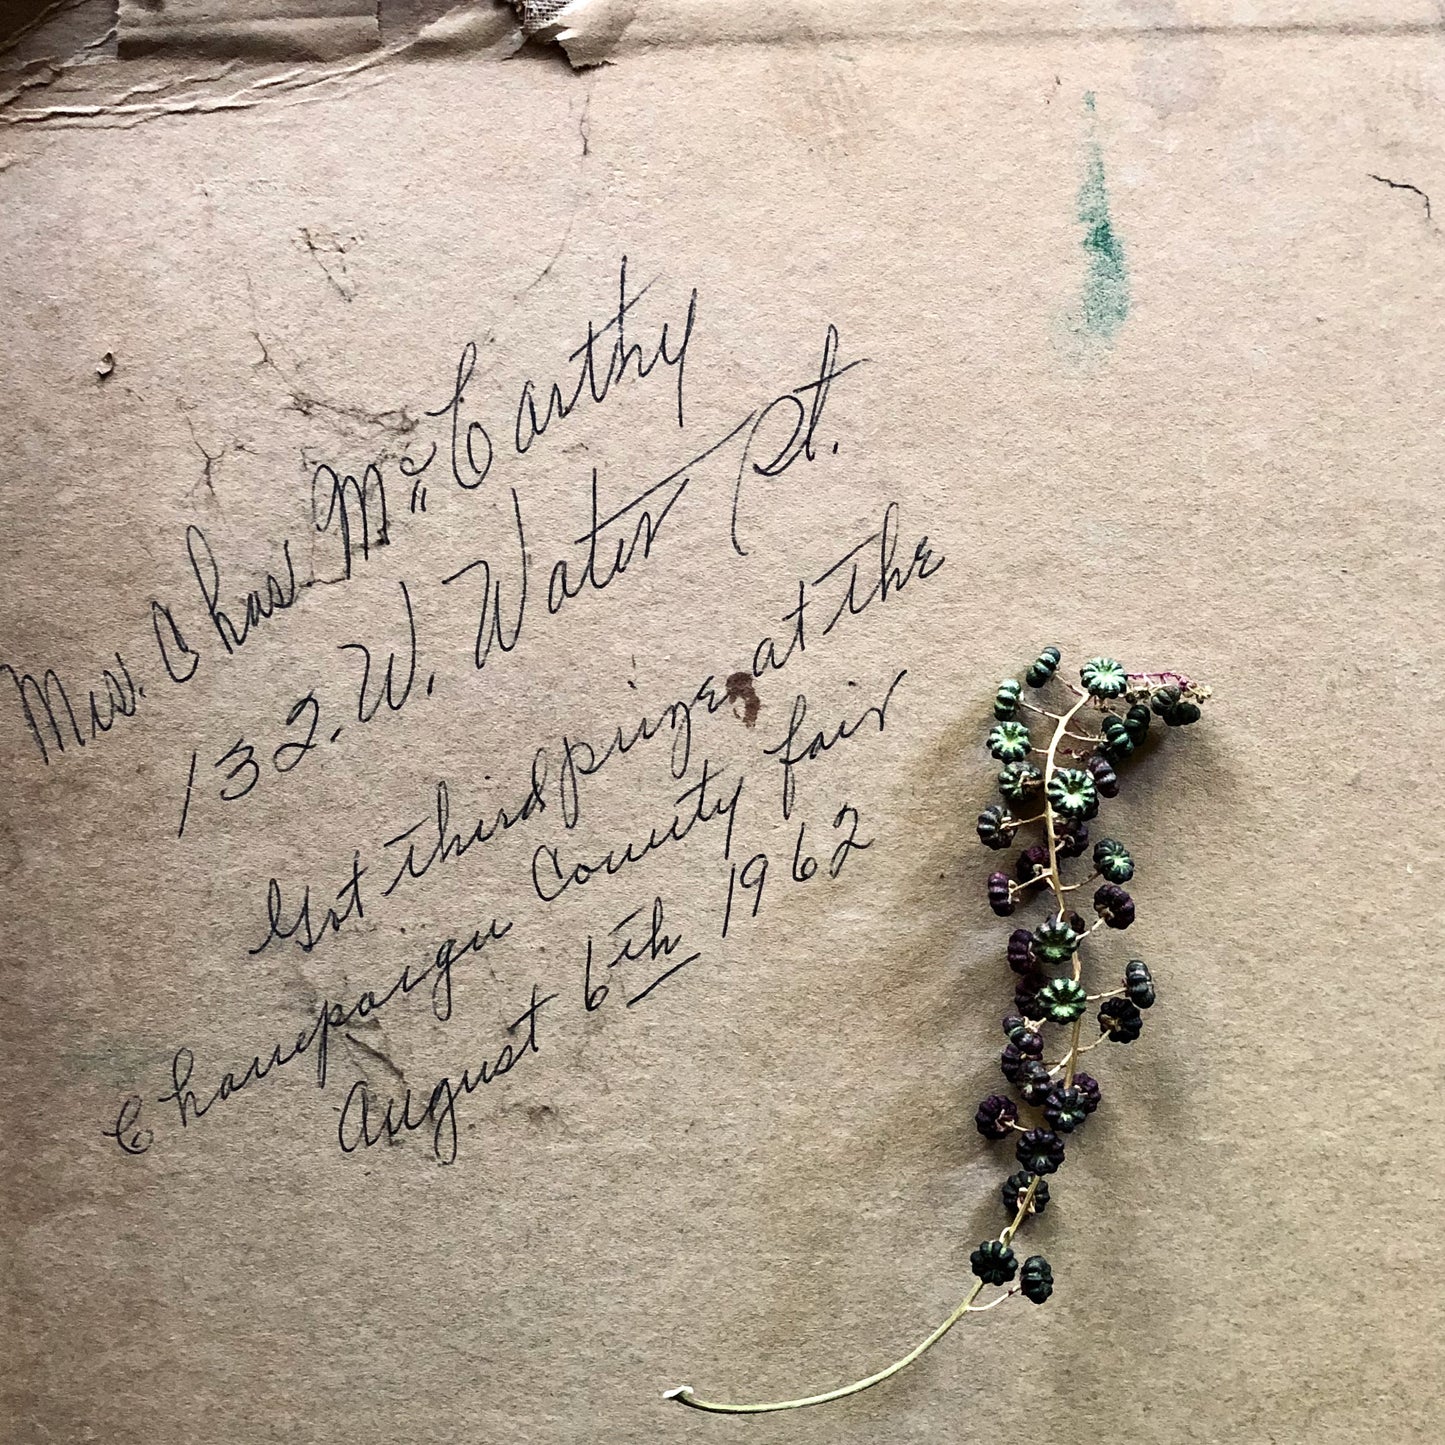 Mrs. Chas. Mc Carthy
132. W. Water St.
Got third prize at the
Champaign County fair
August 6th 1962